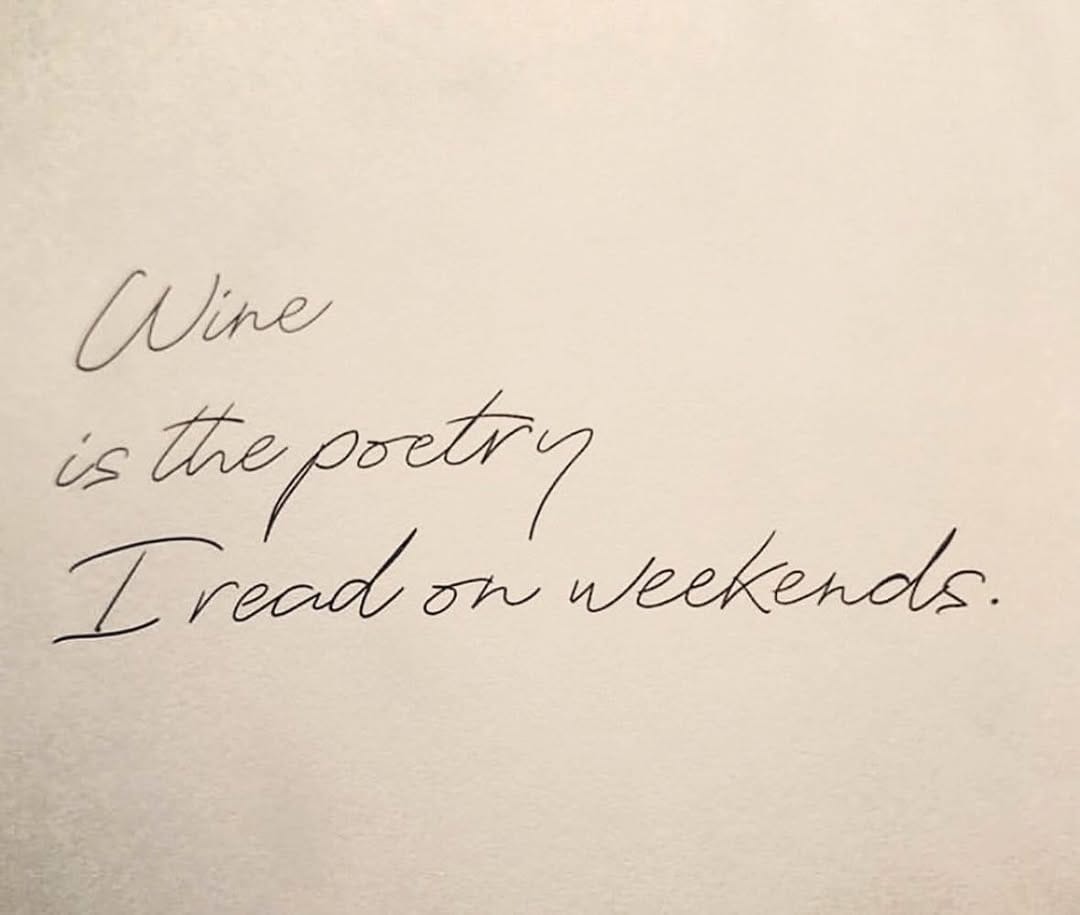 Wine
is the poetry
I read on weekends.